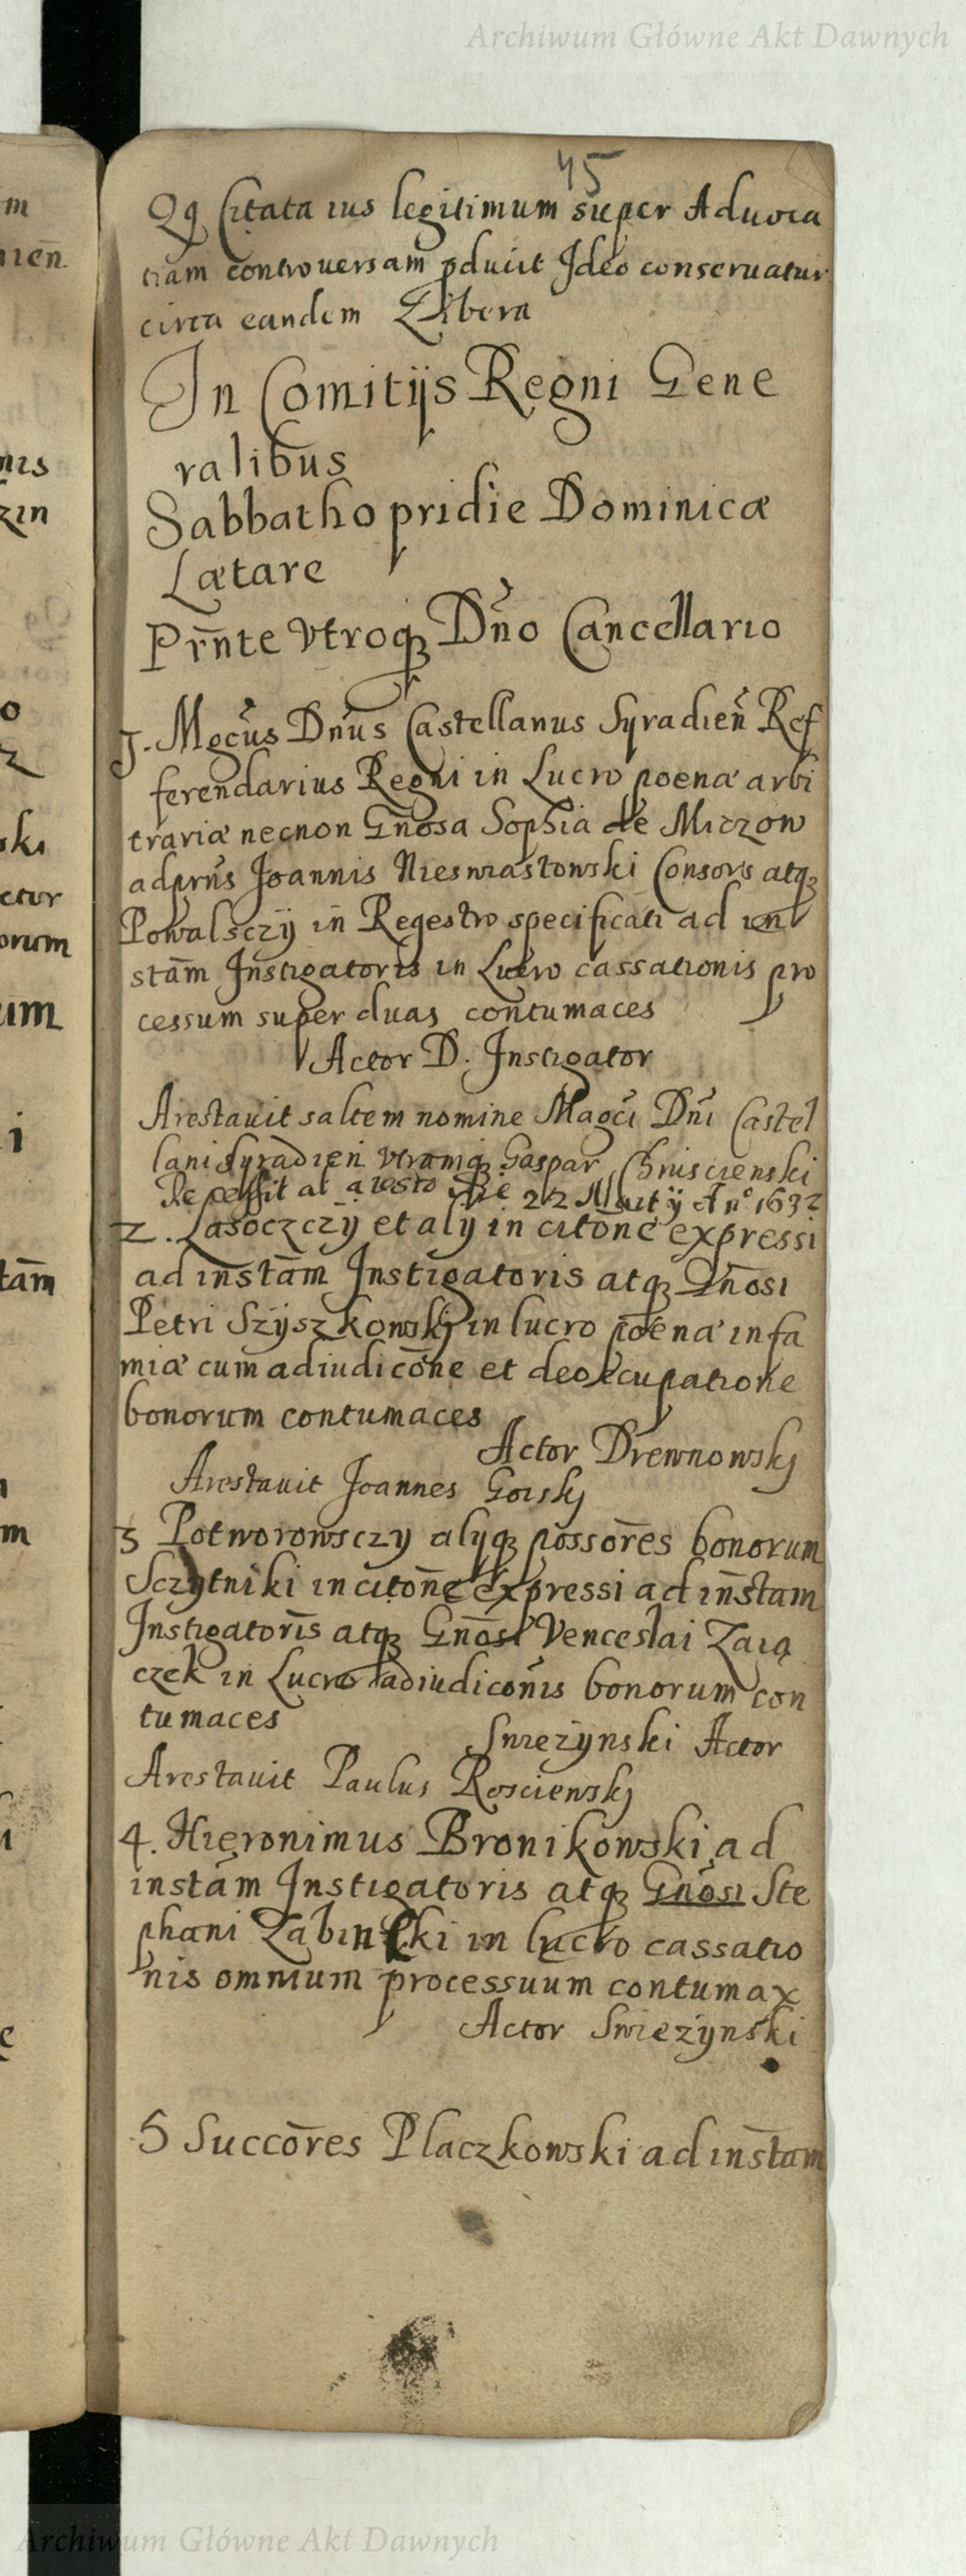 Archiwum Główne Akt Dawnych
45
Qq Citata ius legitimum super Aduoca
tiam controuersam pduxit Ideo conseruatur
circa eandem Libera
In Comitijs Regni Gene
ralibus
Sabbatho pridie Dominicæ
Lætare
Prn̄te Vtroq3 Dn̄o Cancellario
1. Mgcūs Dn̄us Castellanus Syradien̄ Ref
ferendarius Regni in Lucro poenæ arbi
trariæ necnon Gn̄osa Sophia de Miczow
Joannis Nieswiastowski Consors atq3
Powalsczÿ in Regestro specificati ad in
stām Instigatoris in Lucro cassationis pro
cessum super duas contumaces
Actor D. Instigator
Arestauit saltem nomine Magci Dn̄i Castel
lani Syradien̄ vtramq3 Gaspar
ab aresto die 22 Martÿ An° 1632
2. Lasoczczÿ et alÿ in citōne expressi
ad instām Instigatoris atq3 Gn̄osi
Petri Szÿszkowskj in lucro poenæ infa
miæ cum adiudicōne et deoccupatione
bonorum contumaces
Actor Drewnowskj
Arestauit Joannes Gorskj
3 Potworowsczy alÿq3 possōres bonorum
Sczytniki in citōne expressi ad instām
Instigatoris atq3 Gn̄osi Venceslai Zaią
czek in Lucro adiudicōnis bonorum con
tumaces
Swieżynski Actor
Arestauit Paulus Rosciewskj
4. Hieronimus Bronikowski ad
instām Instigatoris atq3 Gn̄osi Ste
phani in lucro cassatio
nis omnium processuum contumax
Actor Swieżynski
5 Succōres Placzkowski ad instām
Archiwum Główne Akt Dawnych